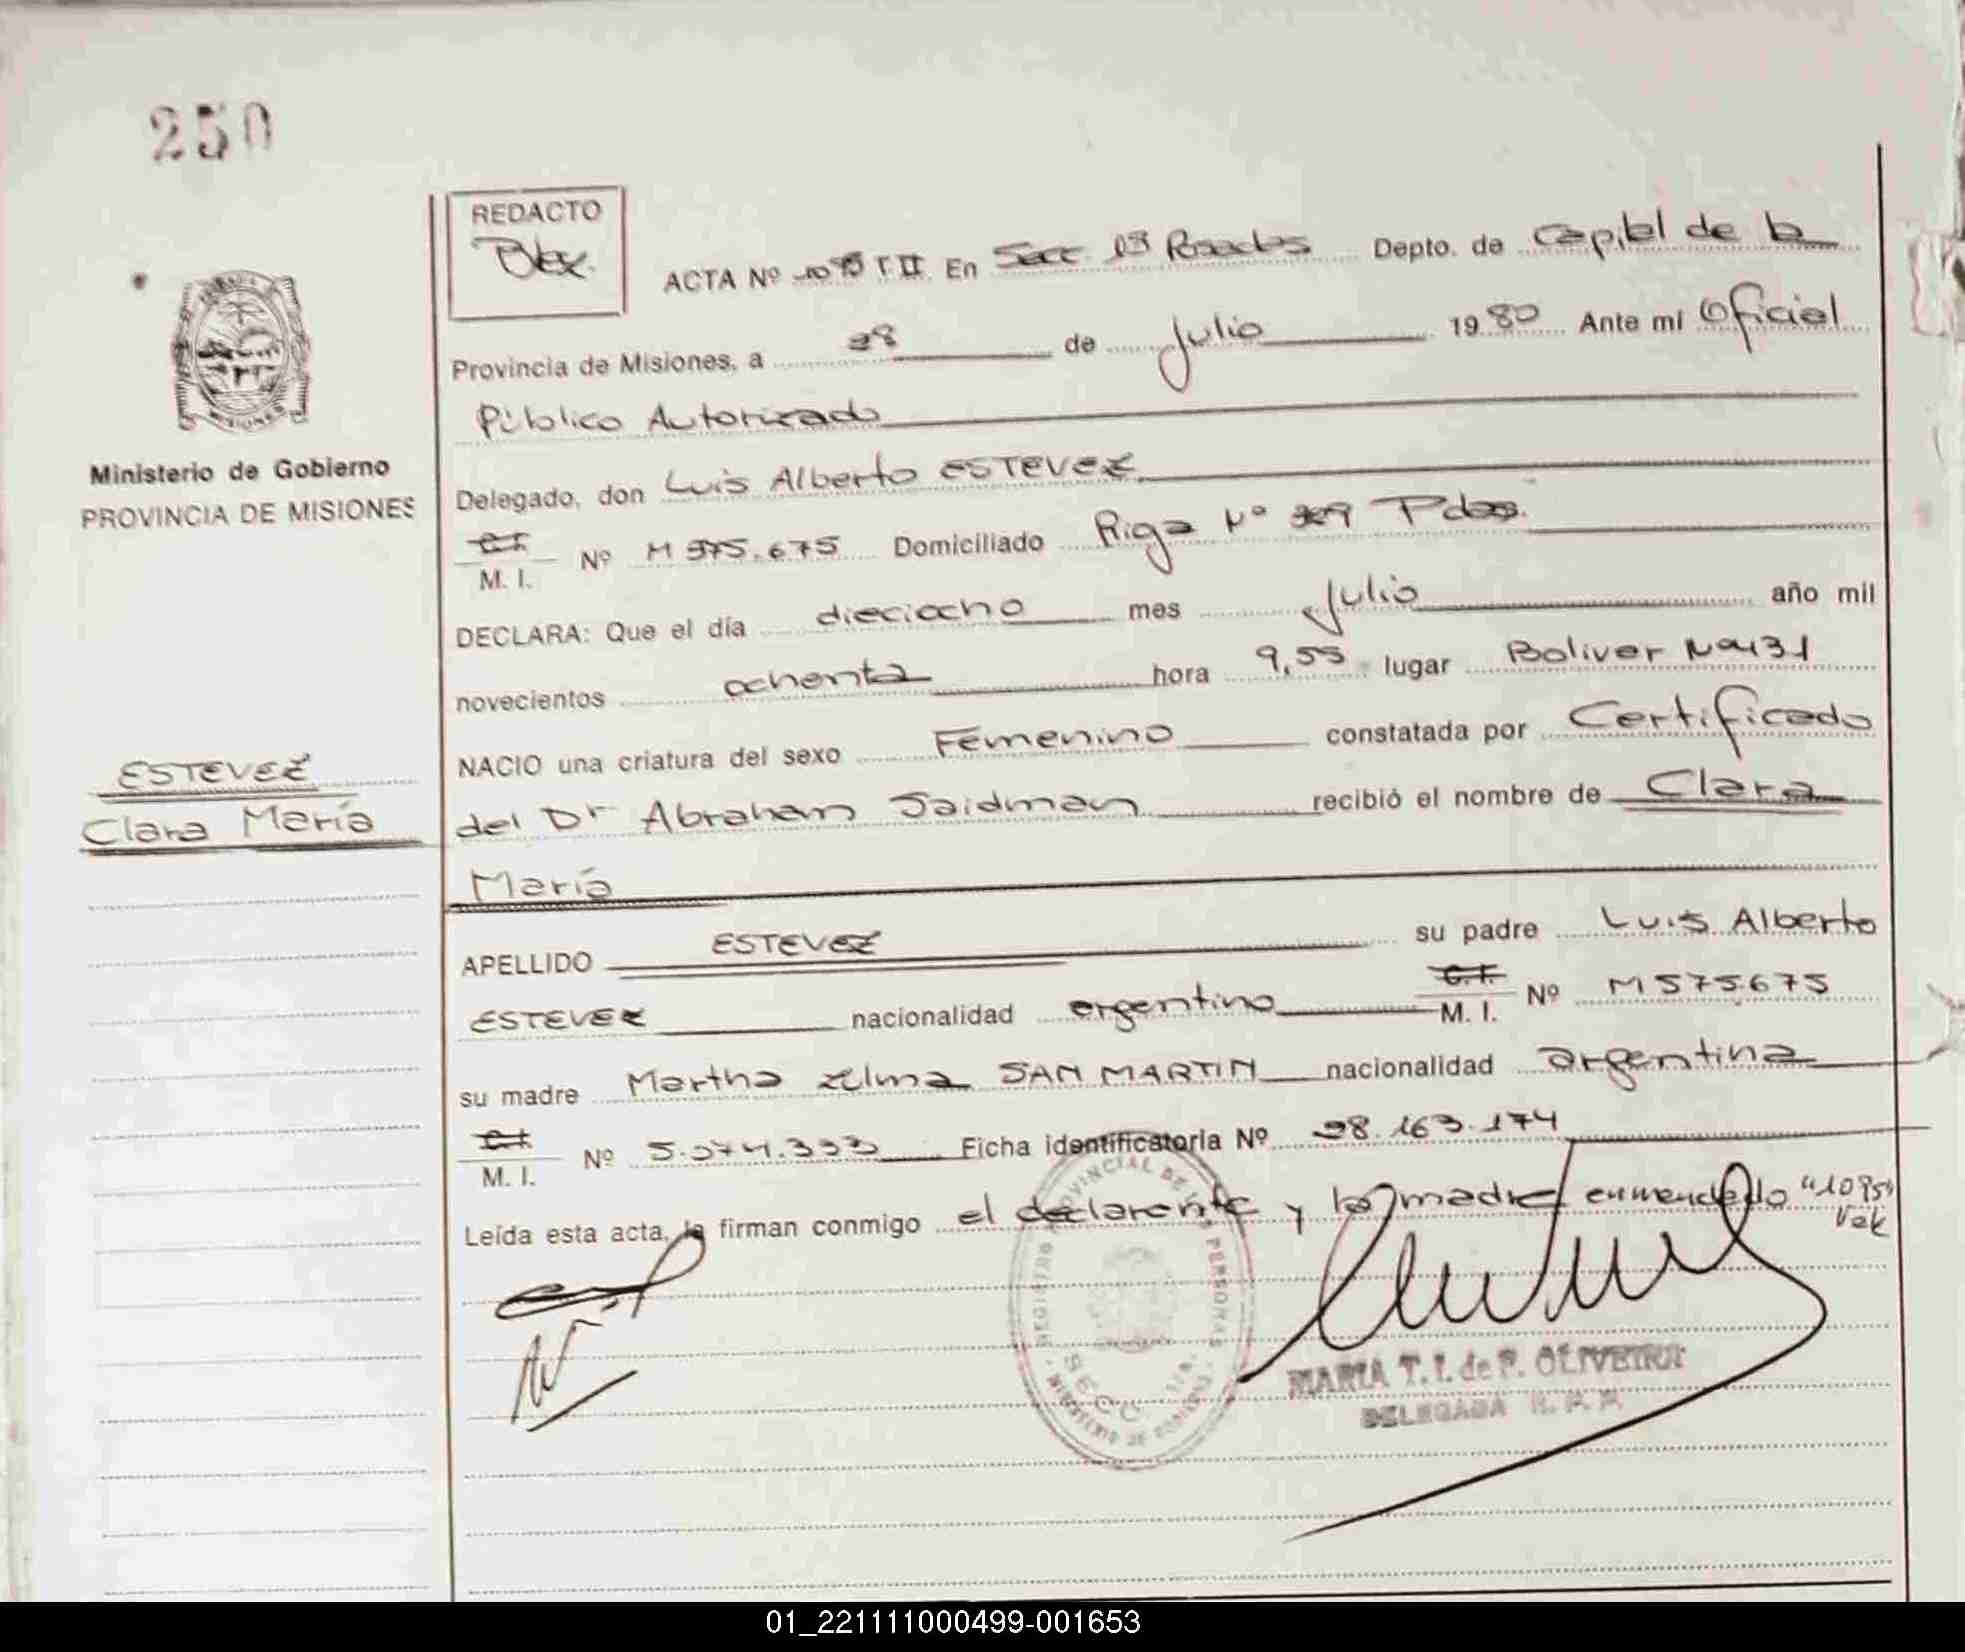 250
REDACTO
ACTA Nº 1095 T II En Secc. 1ª Posadas Depto. de Capital de la
Provincia de Misiones, a 28 de Julio 1980 Ante mí Oficial
Público Autorizado
Ministerio de Gobierno
PROVINCIA DE MISIONES
Delegado, don Luis Alberto ESTEVEZ
C.I.
M. I. Nº Domiciliado Riga Nº Pdas.
DECLARA: Que el día dieciocho mes Julio año mil
novecientos ochenta hora 9,55 lugar Bolivar Nº 431
NACIO una criatura del sexo Femenino constatada por Certificado
ESTEVEZ
Clara María
del Dr Abraham Saidman recibió el nombre de Clara
María
APELLIDO ESTEVEZ su padre Luis Alberto
ESTEVEZ nacionalidad argentino C.I. M. I. Nº M575.675
su madre Martha Zelma SAN MARTIN nacionalidad argentina
C.I.
M. I. Nº Ficha identificatoria Nº 28.163.174
Leída esta acta, la firman conmigo el declarante y la madre enmendado "1095"
Vale
REGISTRO PROVINCIAL DE LAS PERSONAS
SECC. 1ra.
MINISTERIO DE GOBIERNO
MARIA T. I. de P. OLIVEIRA
DELEGADA R. P. P.
01_221111000499-001653